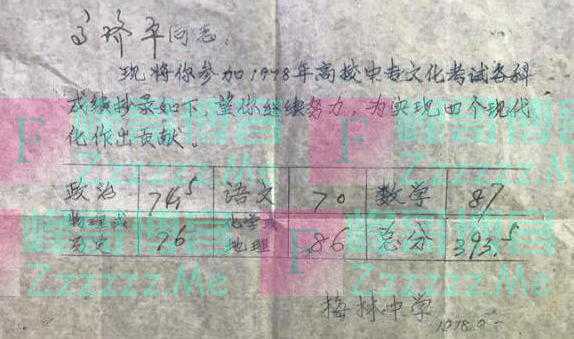 平同志:
现将你参加1978年高校中专文化考试各科
成绩抄录如下,望你继续努力,为实现四个现代
化作出贡献。
政治 74.5 语文 70 数学 87
物理或历史 76 化学或地理 86 总分 393.5
梅林中学
1978.9
Zzzzzz.Me
Zzzzzz.Me